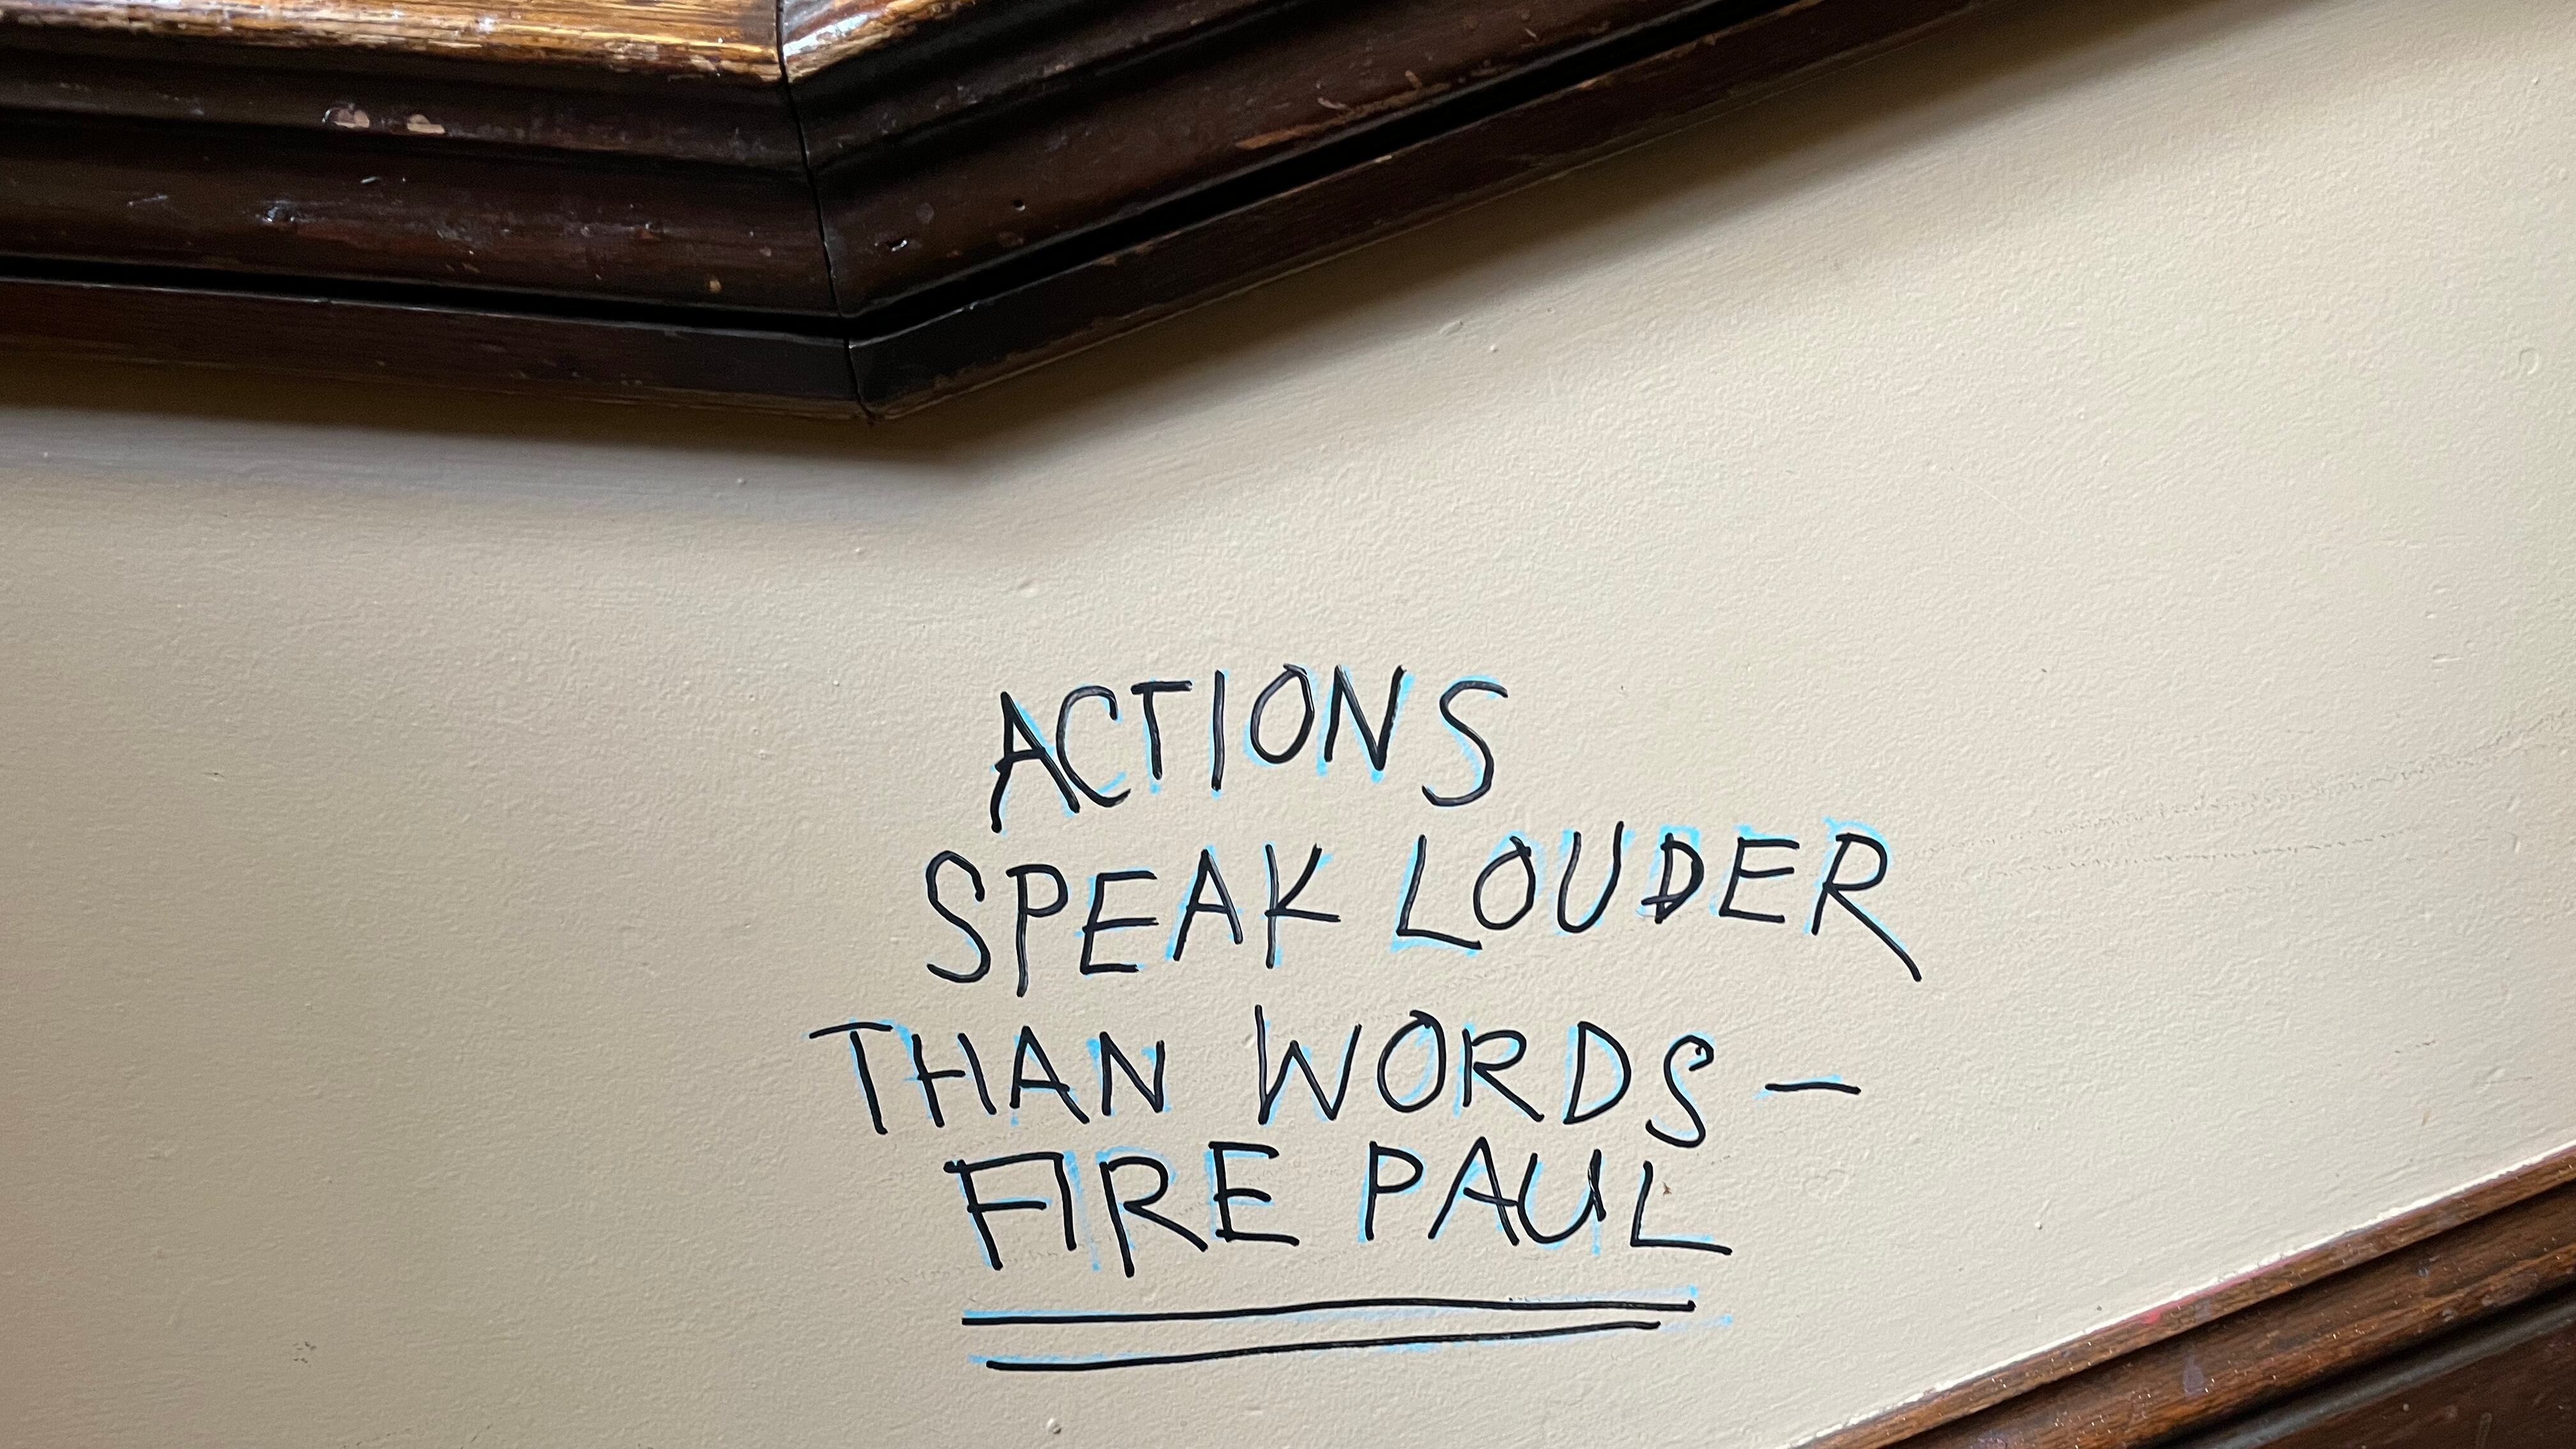 ACTIONS
SPEAK LOUDER
THAN WORDS—
FIRE PAUL